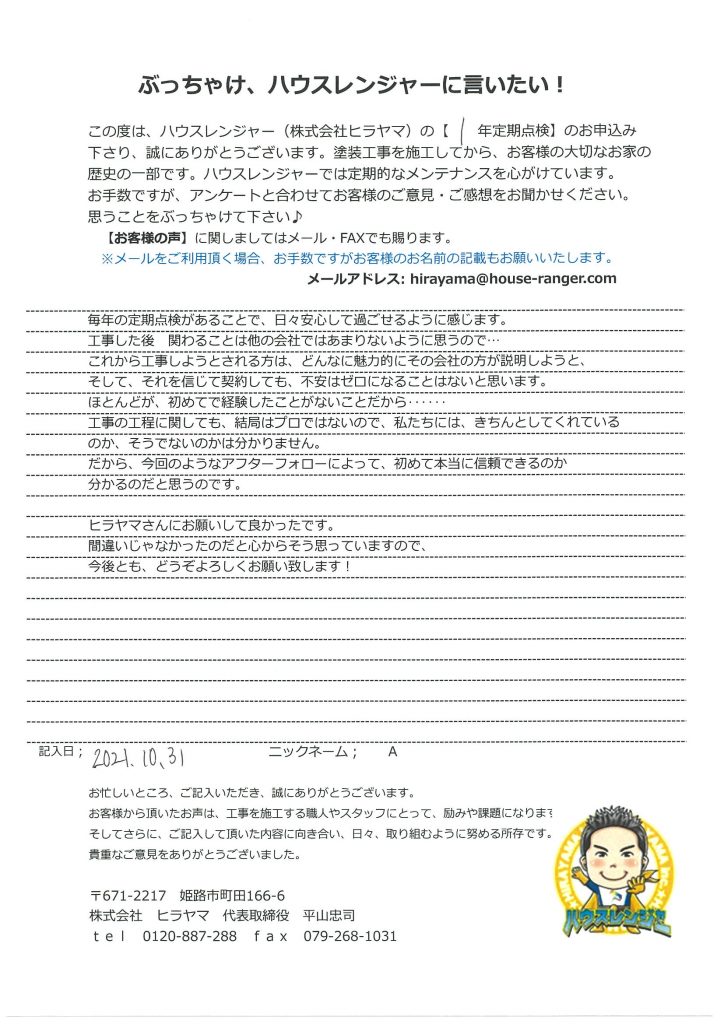 ぶっちゃけ、ハウスレンジャーに言いたい！
この度は、ハウスレンジャー（株式会社ヒラヤマ）の【 1 年定期点検】のお申込み
下さり、誠にありがとうございます。塗装工事を施工してから、お客様の大切なお家の
歴史の一部です。ハウスレンジャーでは定期的なメンテナンスを心がけています。
お手数ですが、アンケートと合わせてお客様のご意見・ご感想をお聞かせください。
思うことをぶっちゃけて下さい♪
【お客様の声】に関しましてはメール・FAXでも賜ります。
※メールをご利用頂く場合、お手数ですがお客様のお名前の記載もお願いいたします。
メールアドレス: hirayama@house-ranger.com
毎年の定期点検があることで、日々安心して過ごせるように感じます。
工事した後　関わることは他の会社ではあまりないように思うので…
これから工事しようとされる方は、どんなに魅力的にその会社の方が説明しようと、
そして、それを信じて契約しても、不安はゼロになることはないと思います。
ほとんどが、初めてで経験したことがないことだから‥‥‥
工事の工程に関しても、結局はプロではないので、私たちには、きちんとしてくれている
のか、そうでないのかは分かりません。
だから、今回のようなアフターフォローによって、初めて本当に信頼できるのか
分かるのだと思うのです。
ヒラヤマさんにお願いして良かったです。
間違いじゃなかったのだと心からそう思っていますので、
今後とも、どうぞよろしくお願い致します！
記入日； 2021.10.31　ニックネーム；　A
お忙しいところ、ご記入いただき、誠にありがとうございます。
お客様から頂いたお声は、工事を施工する職人やスタッフにとって、励みや課題になります
そしてさらに、ご記入して頂いた内容に向き合い、日々、取り組むように努める所存です。
貴重なご意見をありがとうございました。
〒671-2217　姫路市町田166-6
株式会社　ヒラヤマ　代表取締役　平山忠司
ｔｅｌ　0120-887-288　ｆａｘ　079-268-1031
ハウスレンジャー